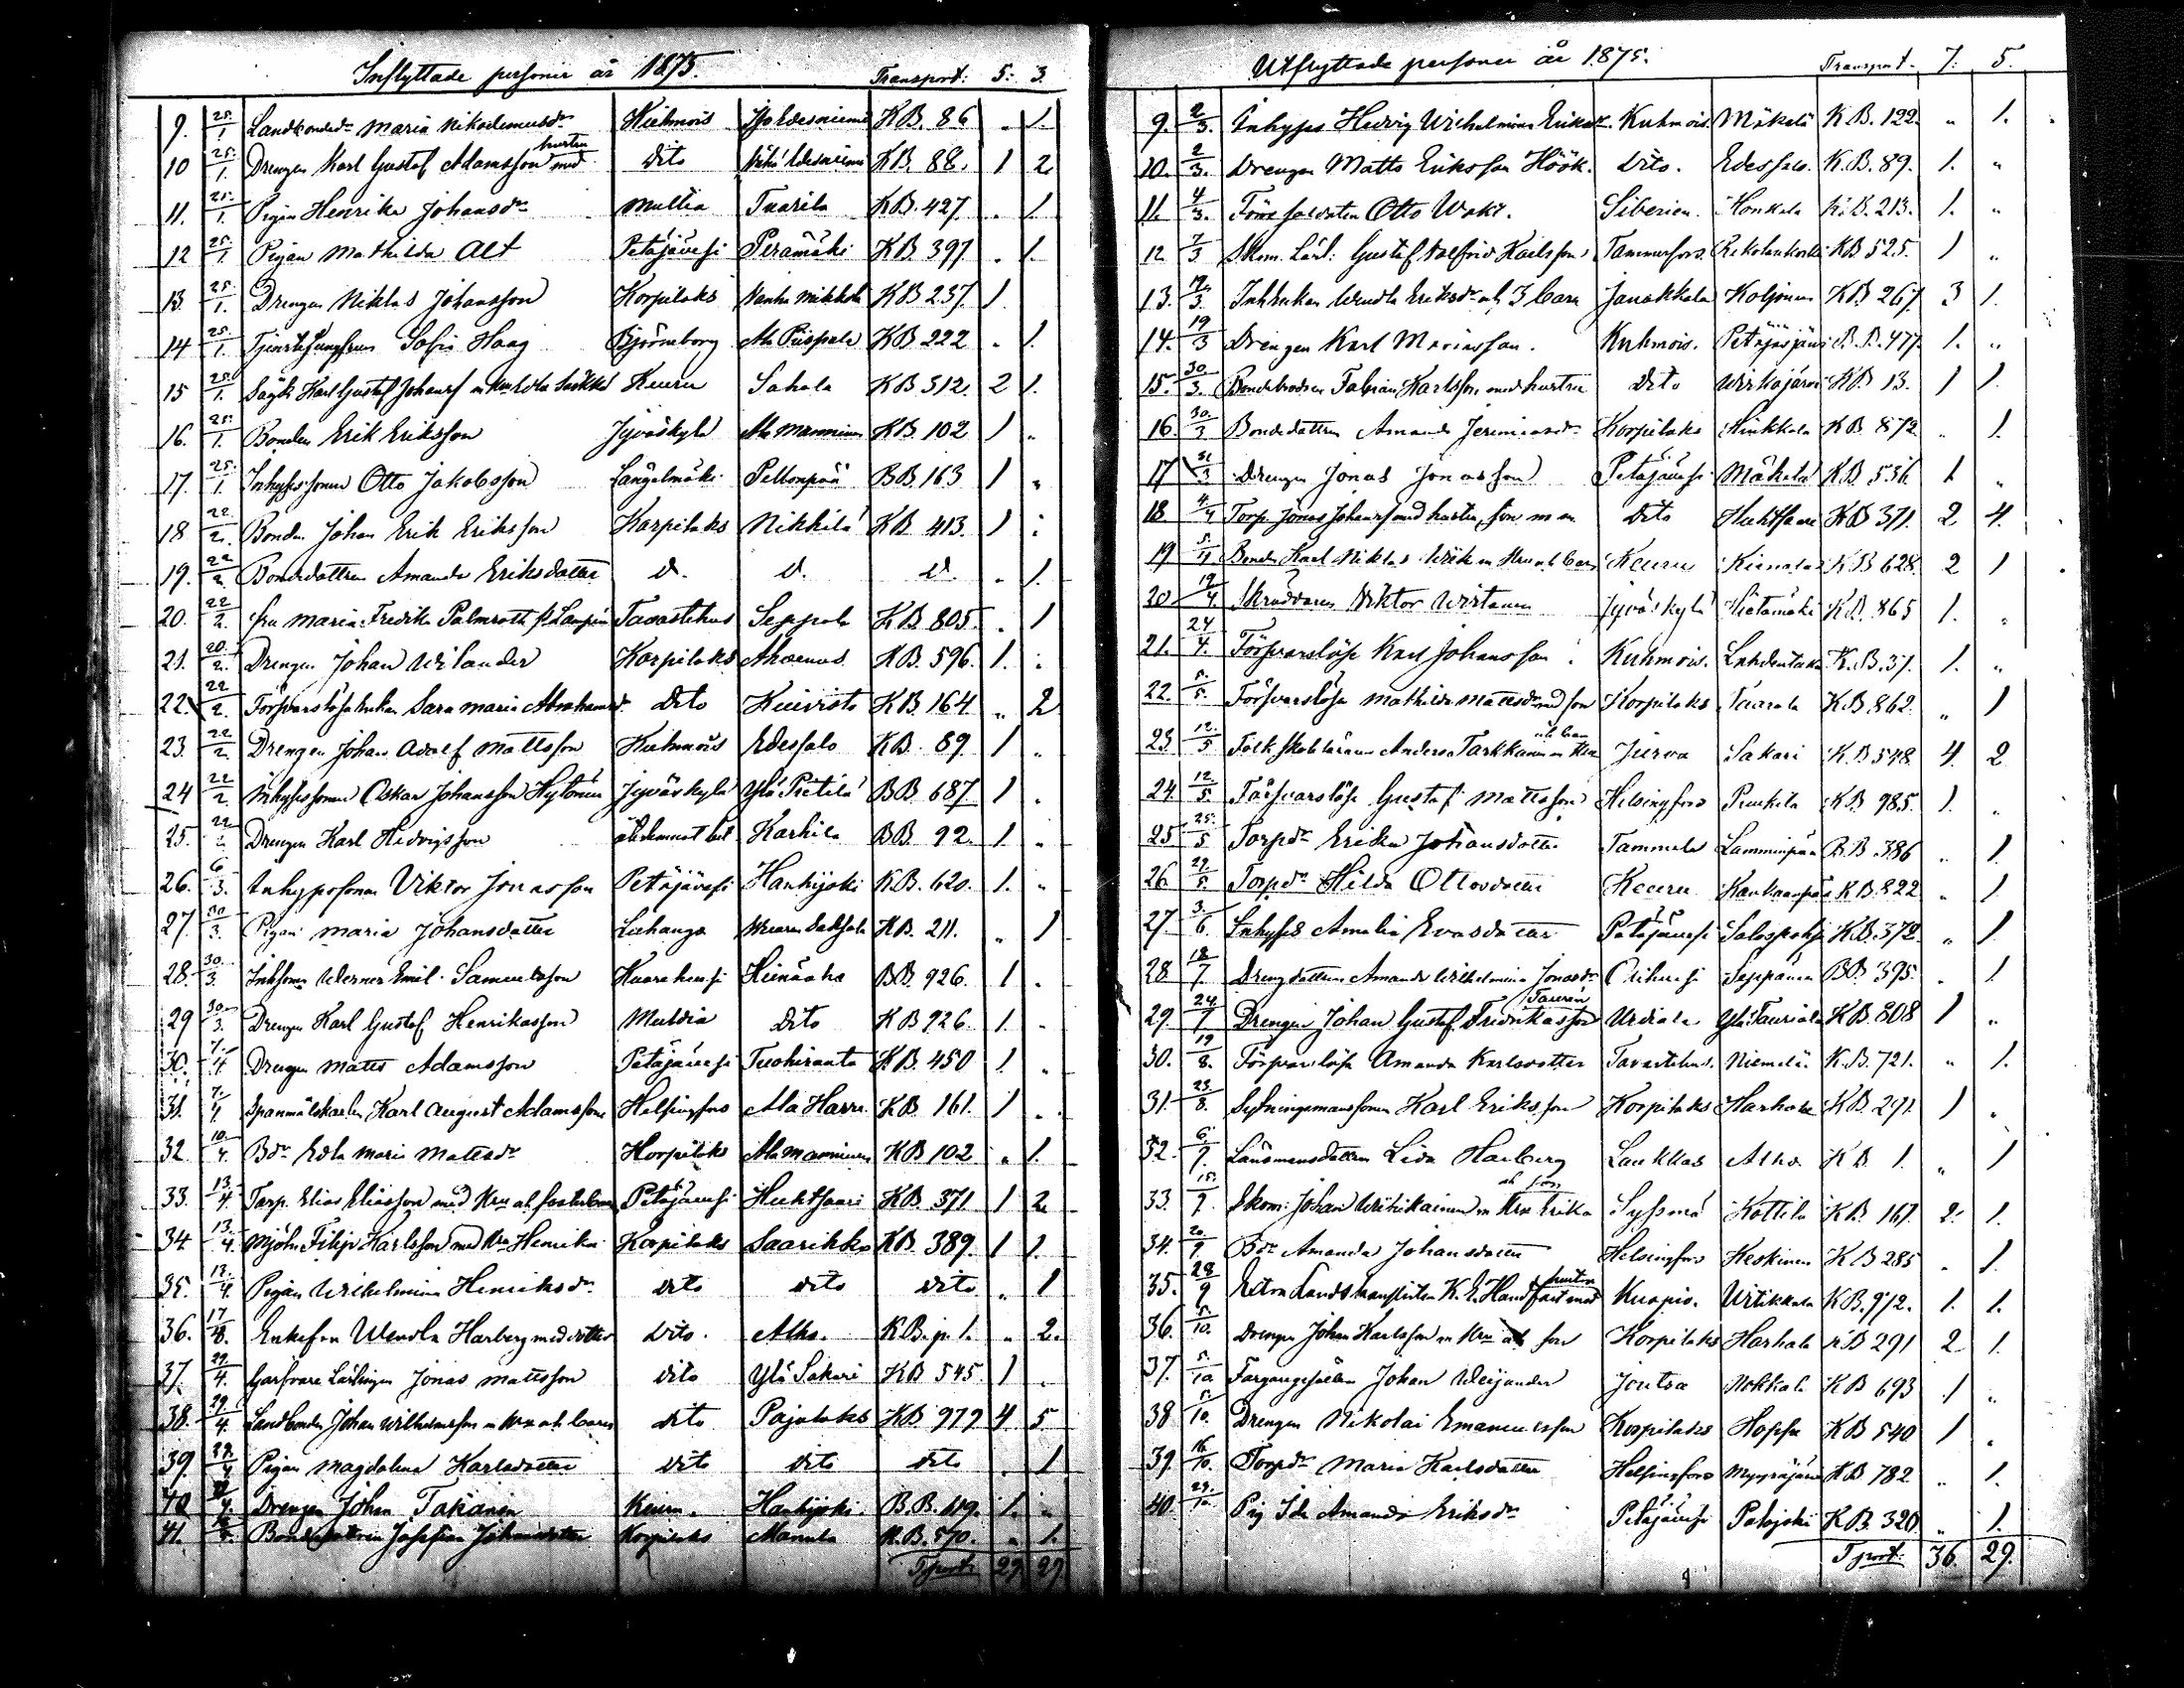 Inflyttade personer år 1875. Transport: 5: 3.
9. 25/1. Maria Nikodemusdr Kuhmois K.B. 86 " 1.
10 25/1. Drengen Karl Gustaf Adamsson med hustru Dito KB. 88. 1 2
11. 25/1. Pigan Henrika Johansdr Multia Tuarila KB. 427 " 1.
12 25/1. Pigan Mathilda Alt Petäjävesi Perämäki KB 397 " 1.
13. 25/1. Drengen Niklas Johansson Korpilaks Vanha Mikkola KB 237. 1
14 25/1. Tjenstejungfrun Sofia Haag Björneborg Ala Piispala KB 222 " 1.
15 25/1. Karl Gustaf Keuru Sahala KB 512. 2 1.
16. 25/1. Bonden Erik Eriksson Jyväskylä Ala Manninen KB. 102 1 "
17. 25/1. Inhyses sonen Otto Jakobsson Längelmäki Peltonpää BB. 163 1 "
18 22/2. Bonden Johan Erik Eriksson Korpilaks Nikkilä KB 413. 1 "
19. 22/2 Bondedottren Amanda Eriksdotter D. D. D. " 1.
20. 22/2. Fru Maria Fredrika Palmroth Tavastehus Seppola KB 805. " 1
21. 20/2. Drengen Johan Wilander Korpilaks Ahvenus KB. 596. 1. "
22. 22/2. Försvarslösa enkan Sara Maria Abrahamsd. Dito Kuivisto KB. 164. " 2
23 22/2. Drengen Johan Adolf Mattsson Kuhmois Edessalo KB. 89. 1 "
24 22/2. Inhyses sonen Oskar Johansson Hytönen Jyväskylä Ylä Pietilä BB 687 1 "
25. 22/2 Drengen Karl Hedvigsson Karhila BB 92. 1. "
26. 6/3. Inhyses sonen Viktor Jonasson Petäjävesi Hankijoki KB. 620. 1. "
27. 3. Pigan Maria Johansdotter Luhanga KB. 211. " 1
28. 30/3. Inhs sonen Werner Emil Samuelsson Heinäaho BB. 926. 1 "
29 30/3. Drengen Karl Gustaf Henriksson Multia Dito KB 926. 1. "
30. 7/4 Drengen Matts Adamsson Petäjävesi Tuohiranta KB. 450 1. "
31. 7/4 Karl August Adamsson Helsingfors Ala Harri KB 161. 1 "
32 10/4. Bdr Edla Maria Mattsdr Korpilaks Ala Manninen KB 102 " 1.
33. 13/4. Torp. Elias Eliasson med Hru och fosterbarn Petäjävesi Huhtsaari KB. 371 1 2
34 13/4. Mjöln. Filip Karlsson med Hru Henrika Korpilaks Saarikko KB. 389. 1 1.
35. 13/4. Pigan Wilhelmina Henriksdr Dito Dito Dito " 1
36. 17/4. Enkefru Wendla Harberg med dotter Dito. Alho. K.B. p. 1. " 2.
37. 29/4. Garfvare Lärlingen Jonas Mattsson Dito Ylä Sakari KB 545. 1 "
38. 29/4 Landbonden Johan Wilhelmsson m Hru och barn Dito Pajulaks KB. 979 4 5
39. 29/4 Pigan Magdalena Karlsdotter Dito Dito Dito " 1
40 Drengen Johan Takanen Keuru. Hankijoki B.B. 619. 1. "
41. Bondedottren Josefina Johansdotter Korpilaks Mannila K.B. 570. " 1.
Tport: 29 29
Utflyttade personer år 1875. Transport. 7. 5.
9. 2/3. Inhyses Hedvig Wilhelmina Eriksdr Kuhmois Mäkelä K.B. 122. " 1.
10. 2/3. Drengen Matts Eriksson Höök. Dito. Edessalo. K.B. 89. 1. "
11. 4/3. Otto Wakt. Siberien. Honkala K.B. 213. 1. "
12 7/3 Skom. Lärl. Gustaf Walfrid Karlsson Tammerfors. KB 525. 1 "
13. 19/3. Inh. enkan Wendla Eriksdr och 3 barn Janakkala Koljonen KB 267 3 1.
14. 19/3 Drengen Karl Mariasson. Kuhmois. Petäjäsjärvi B.B. 477. 1. "
15. 30/3. Bondebrodren Fabian Karlsson med hustru Dito Wirkajärvi KB 13. 1 1
16. 30/3 Bondedottren Amanda Jeremiasdr Korpilaks Hinkkala KB 872 " 1.
17 31/3 Drengen Jonas Jonasson Petäjävesi Mäkelä KB 536 1 "
18. 4/4 Torp. Jonas Johansson med hustru, son m m Dito Huhtsaari KB 371. 2 4.
19 Bonden Karl Niklas m Hru och barn Keuru KB 628. 2 1
20 19/4. Skräddaren Viktor Wirtanen Jyväskylä Hietamäki KB. 865 1. "
21. 24/4. Försvarslöse Karl Johansson. Kuhmois. K.B. 37. 1. "
22. 5/5. Försvarslösa Mathilda Mattsdr med son Korpilaks Tuarala KB 862. " 1
23 12/5 Folkskolläraren Anders Tarkkanen m Hru och barn Jurva Sakari KB 548. 4. 2
24 12/5. Försvarslöse Gustaf Mattsson Helsingfors Puukila KB 985. 1. "
25 25/5 Torpdr Erika Johansdotter Tammela Lamminpää B.B 386 " 1.
26 29/5 Torpdr Hilda Ottosdotter Keuru Kankaanpää KB 822 " 1
27 3/6. Inhyses Amalia Evasdotter Petäjävesi Salospohja KB. 372 " 1
28 18/7. Drengdottren Amanda Wilhelmina Jonasdr Seppänen BB. 395. " 1.
29. 24/7 Drengen Johan Gustaf Fredriksson Taurén Urdiala Ylä Tauriala KB. 808 1 "
30. 19/8. Försvarslösa Amanda Karlsdotter Tavastehus. Niemelä. KB. 721. " 1.
31. 23/8. Sytningsmanssonen Karl Eriksson Korpilaks Harhala KB 291 1 "
32. 6/9. Länsmansdottren Lida Harberg Laukkas Alho KB 1. " 1
33 15/9. Skom. Johan Wihikainen m Hru Erika och son Syssmä Kottila KB 167. 2. 1.
34. 20/9. Bdr Amanda Johansdotter Helsingfors Keskinen KB 285 " 1.
35. 28/9 Extra Landskanslisten K. E. Handfast med hustru Kuopio. Uitikkala KB. 972. 1. 1.
36. 5/10. Drengen Johan Karlsson m Hru och son Korpilaks Harhala KB 291 2 1.
37. 5/10 Johan Weijander Joutsa Nokkala KB 693 1 "
38 5/10. Drengen Nikolai Emanuelsson Korpilaks Hoppu KB 540 1 "
39 16/10. Torpdr Maria Karlsdotter Helsingfors KB 782 " 1.
40. 29/10. Pig. Ida Amanda Eriksdr Petäjävesi Patajoki KB 320 " 1.
Tport: 36. 29.